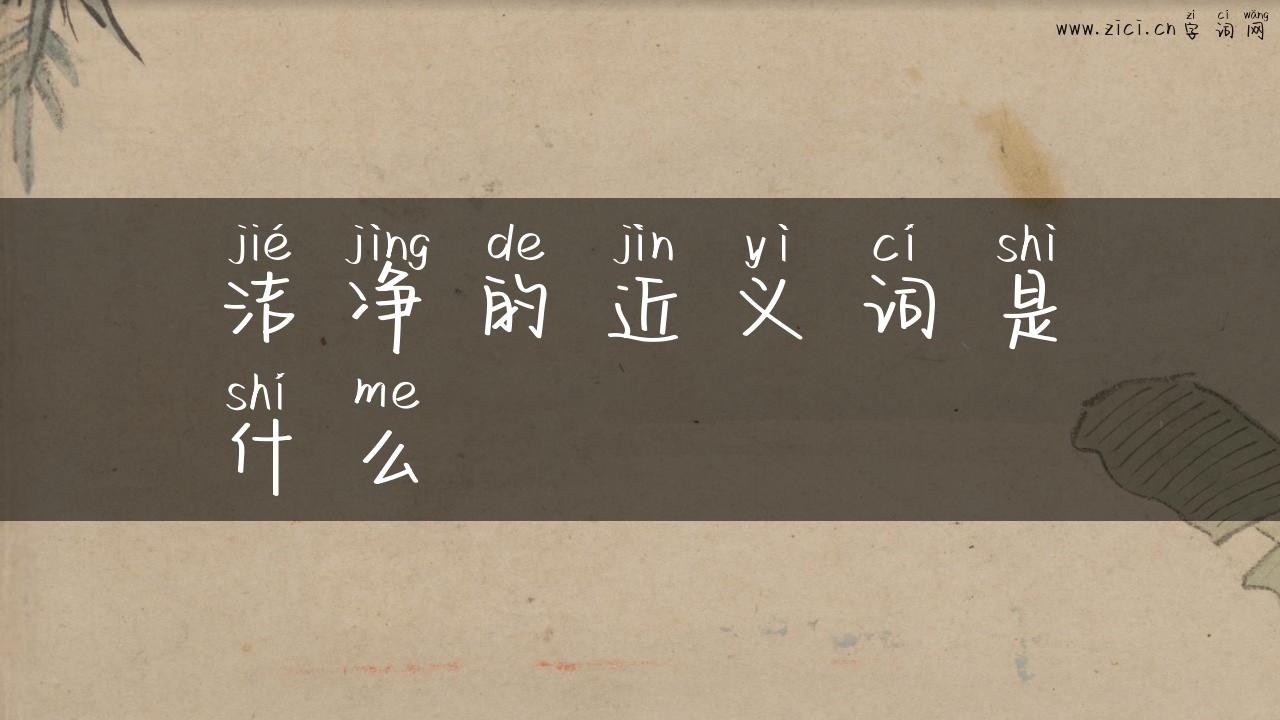 zì cí wǎng
www.zici.cn 字词网
jié jìng de jìn yì cí shì
洁净的近义词是
shí me
什么